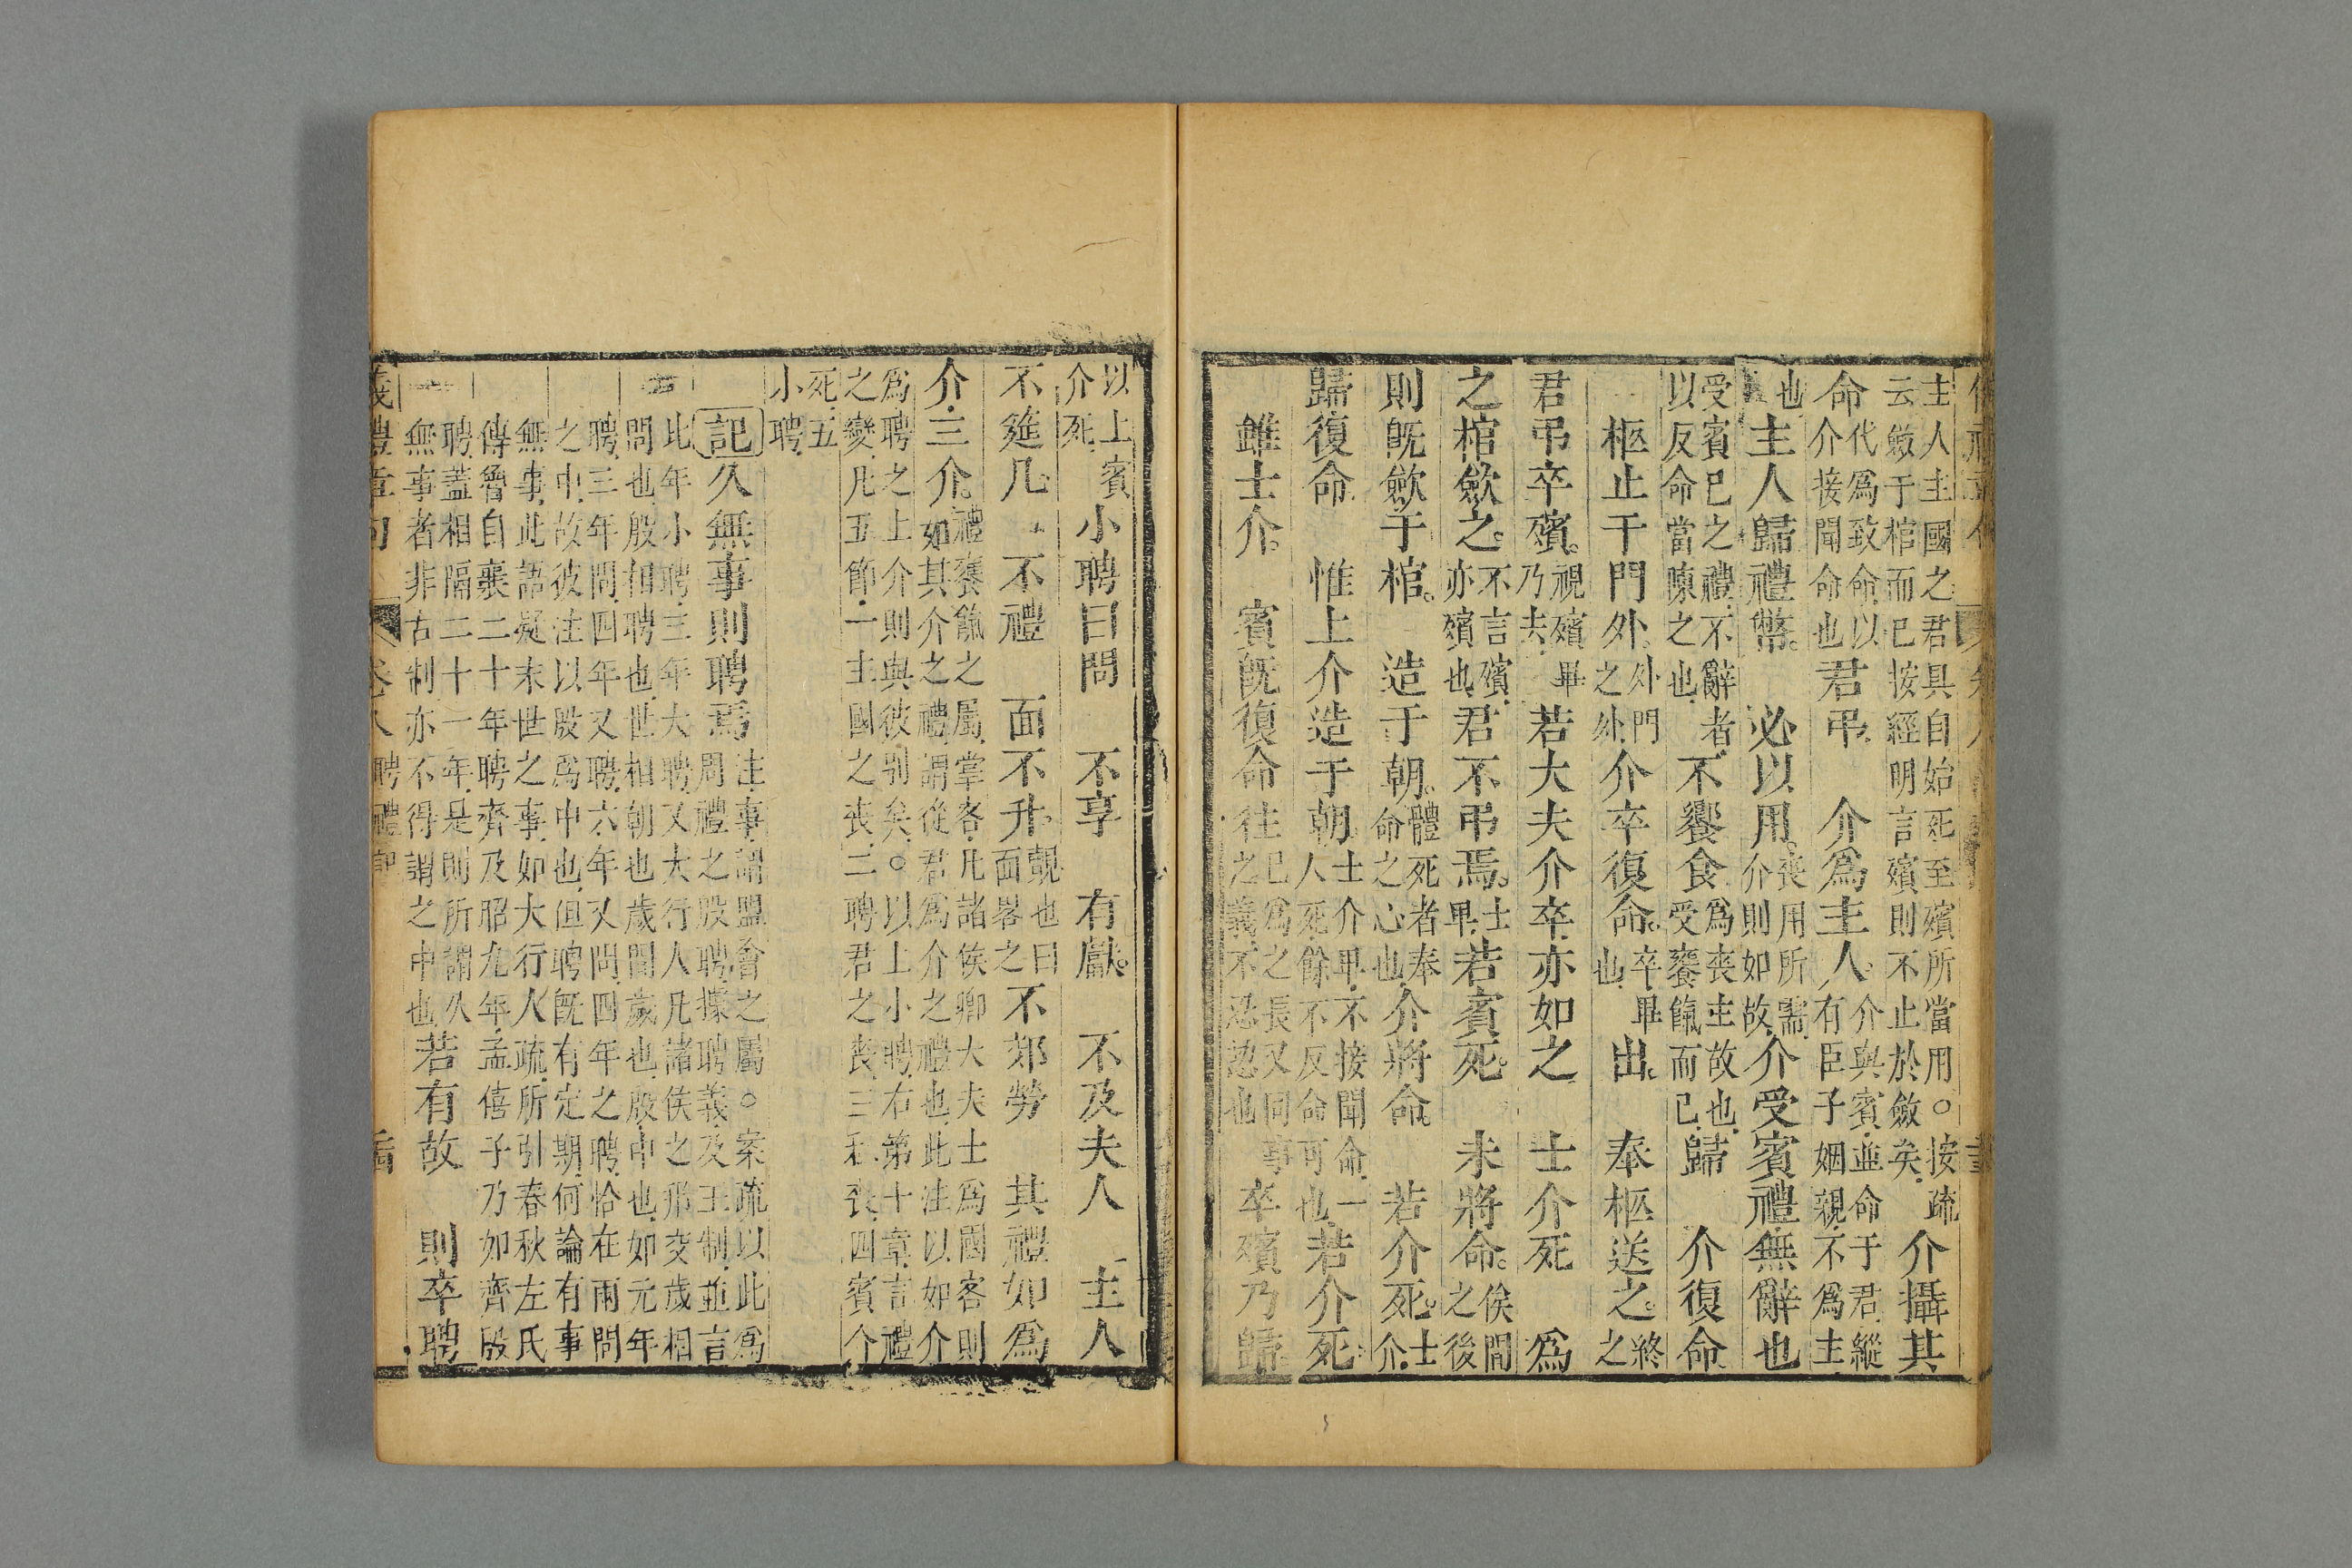 主人主國之君具自始死至殯所當用○按疏
云斂于棺而已按經明言殯則不止於斂矣介攝其
命代爲致命以介接聞命也君弔介爲主人介與賓並命于君縱有臣子姻親不爲主
也主人歸禮幣必以用喪用所需介則如故介受賓禮無辭也
受賓已之禮不辭者以反命當陳之也不饗食爲喪主故也受饔餼而已歸介復命
柩止于門外外門之外介卒復命卒畢也出奉柩送之終之
君弔卒殯視殯畢乃去若大夫介卒亦如之士介死爲
之棺斂之不言殯亦殯也君不弔焉士卑若賓死未將命俟間之後
則旣斂于棺造于朝體死者奉命之心也介將命若介死士介
歸復命惟上介造于朝士介卑不接聞命一人死餘不反命可也若介死
雖士介賓旣復命往已爲之長又同事之義不恝也卒殯乃歸
以上賓介死小聘曰問不享有獻不及夫人主人
不筵几不禮面不升面覿也曰畧之不郊勞其禮如爲
介三介禮饔餼之屬掌客凡諸侯卿大夫士爲國客則
如其介之禮謂從君爲介之禮也此注以如介
爲聘之上介則與彼別矣○以上小聘右第十章言禮
之變凡五節一主國之喪二聘君之喪三私喪四賓介
死五
小聘
記久無事則聘焉注事謂盟會之屬○案疏以此爲
周禮之殷聘據聘義及王制並言
比年小聘三年大聘又大行人凡諸侯之邦交歲相
問也殷相聘也世相朝也歲間歲也殷中也如元年
聘三年問四年又聘六年又問四年之聘恰在兩問
之中故彼注以殷爲中也但聘旣有定期何論有事
無事此語疑末世之事如大行人疏所引春秋左氏
傳魯自襄二十年聘齊及昭九年孟僖子乃如齊殷
聘蓋相隔二十一年是則所謂久
無事者非古制亦不得謂之中也若有故則卒聘